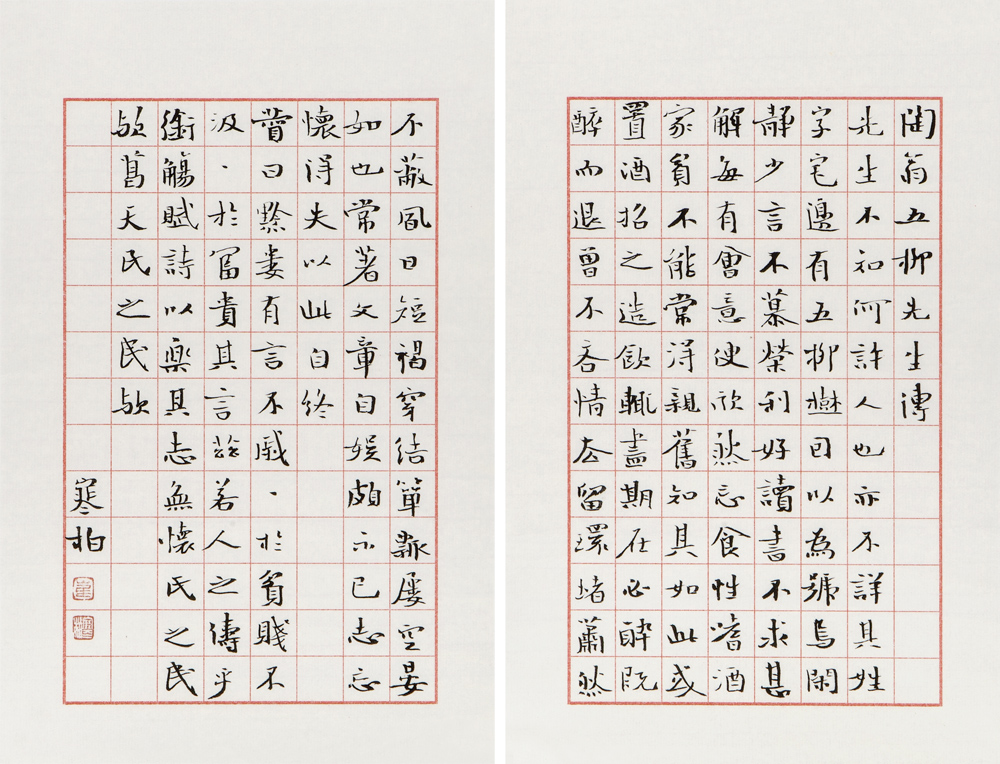 陶翁五柳先生傳
先生不知何許人也亦不詳其姓
字宅邊有五柳樹因以為號焉閑
靜少言不慕榮利好讀書不求甚
解每有會意便欣然忘食性嗜酒
家貧不能常得親舊知其如此或
置酒招之造飲輒盡期在必醉既
醉而退曾不吝情去留環堵蕭然
不蔽風日短褐穿結簞瓢屢空晏
如也常著文章自娛頗示己志忘
懷得失以此自終
贊曰黔婁有言不戚、於貧賤不
汲、於富貴其言茲若人之儔乎
銜觴賦詩以樂其志無懷氏之民
歟葛天氏之民歟
寒柏